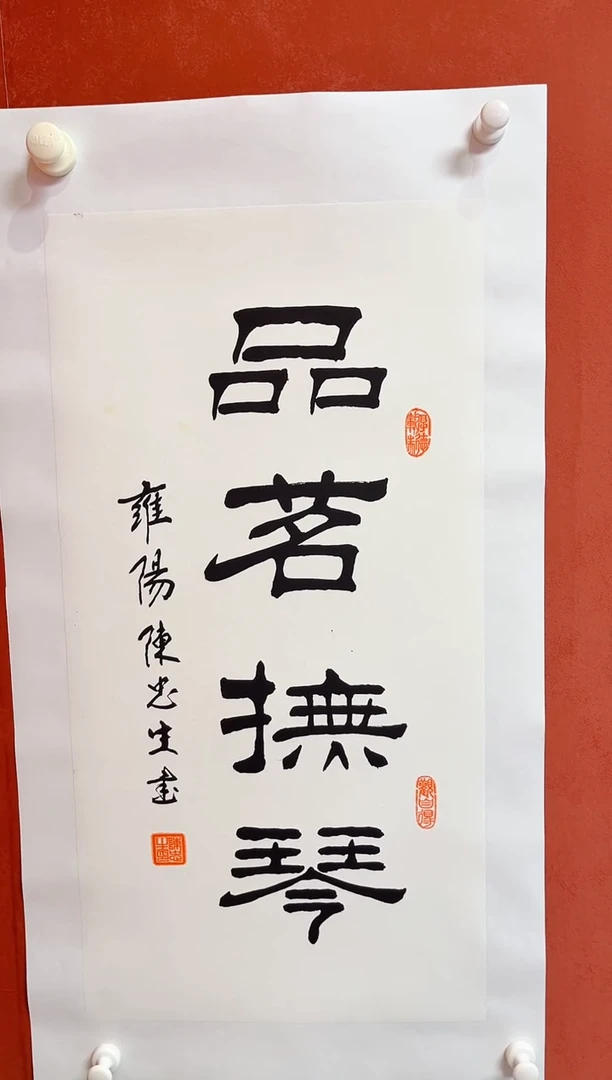 品茗撫琴
雍陽陳忠生書